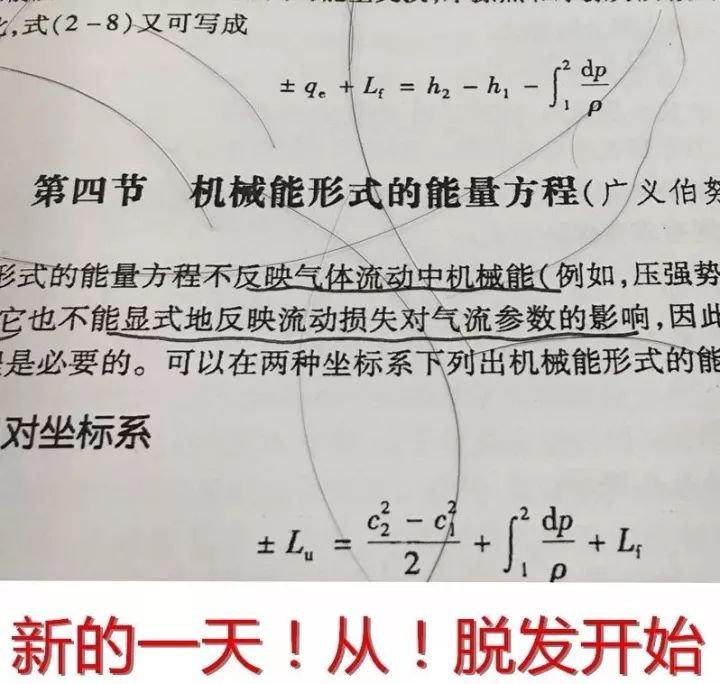 比,式(2-8)又可写成
± qₑ + L_f = h₂ - h₁ - ∫₁² dp/ρ
第四节 机械能形式的能量方程(广义伯努
形式的能量方程不反映气体流动中机械能(例如,压强势
它也不能显式地反映流动损失对气流参数的影响,因此
是必要的。可以在两种坐标系下列出机械能形式的能
对坐标系
± L_u = (c₂² - c₁²)/2 + ∫₁² dp/ρ + L_f
新的一天!从!脱发开始